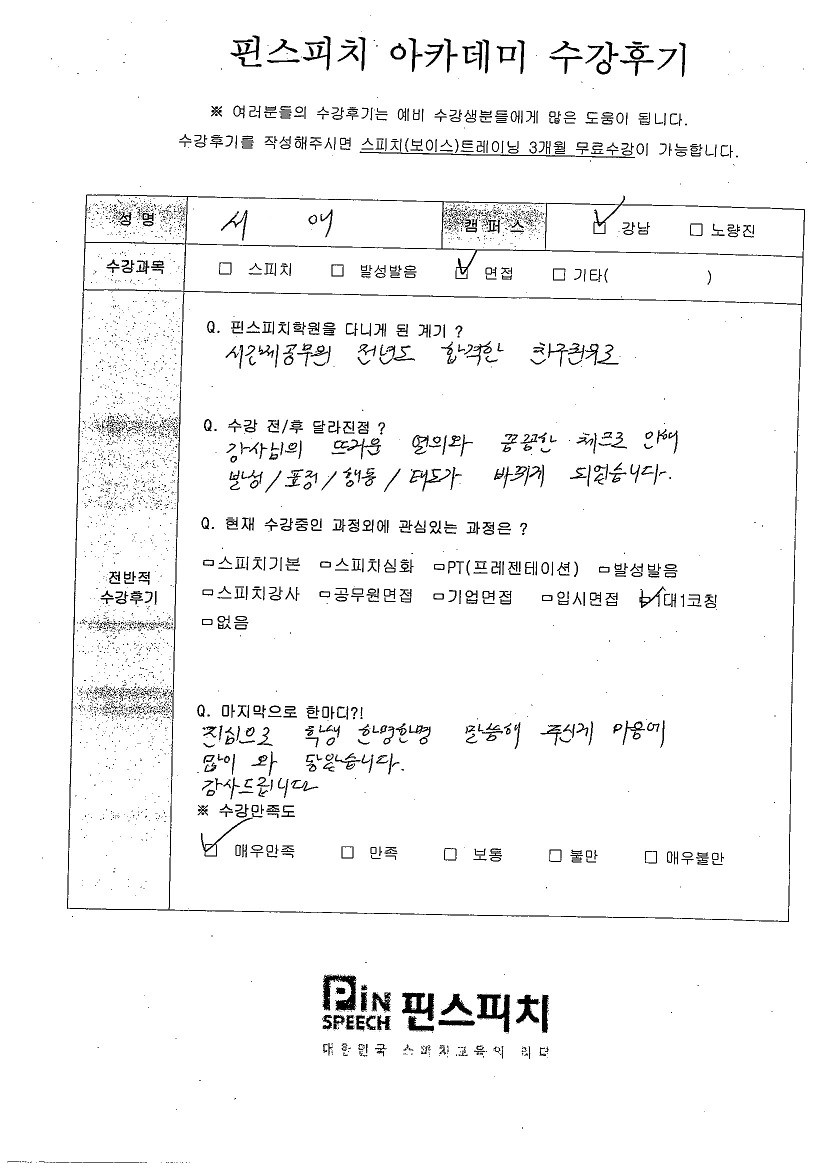 핀스피치 아카데미 수강후기
※ 여러분들의 수강후기는 예비 수강생분들에게 많은 도움이 됩니다.
수강후기를 작성해주시면 스피치(보이스)트레이닝 3개월 무료수강이 가능합니다.
성명 서 애 캠퍼스 ☑ 강남 □ 노량진
수강과목 □ 스피치 □ 발성발음 ☑ 면접 □ 기타( )
Q. 핀스피치학원을 다니게 된 계기 ?
시간제공무원 전년도 합격한 친구권유로
Q. 수강 전/후 달라진점 ?
강사님의 뜨거운 열의와 꼼꼼한 체크로 인해
발성/표정/행동/태도가 바뀌게 되었습니다.
Q. 현재 수강중인 과정외에 관심있는 과정은 ?
□스피치기본 □스피치심화 □PT(프레젠테이션) □발성발음
전반적 수강후기
□스피치강사 □공무원면접 □기업면접 □입시면접 ☑1대1코칭
□없음
Q. 마지막으로 한마디?!
진심으로 학생 한명한명 말씀해 주신게 마음에
많이 와 닿았습니다.
감사드립니다
※ 수강만족도
☑ 매우만족 □ 만족 □ 보통 □ 불만 □ 매우불만
PiN SPEECH 핀스피치
대한민국 스피치교육의 리더